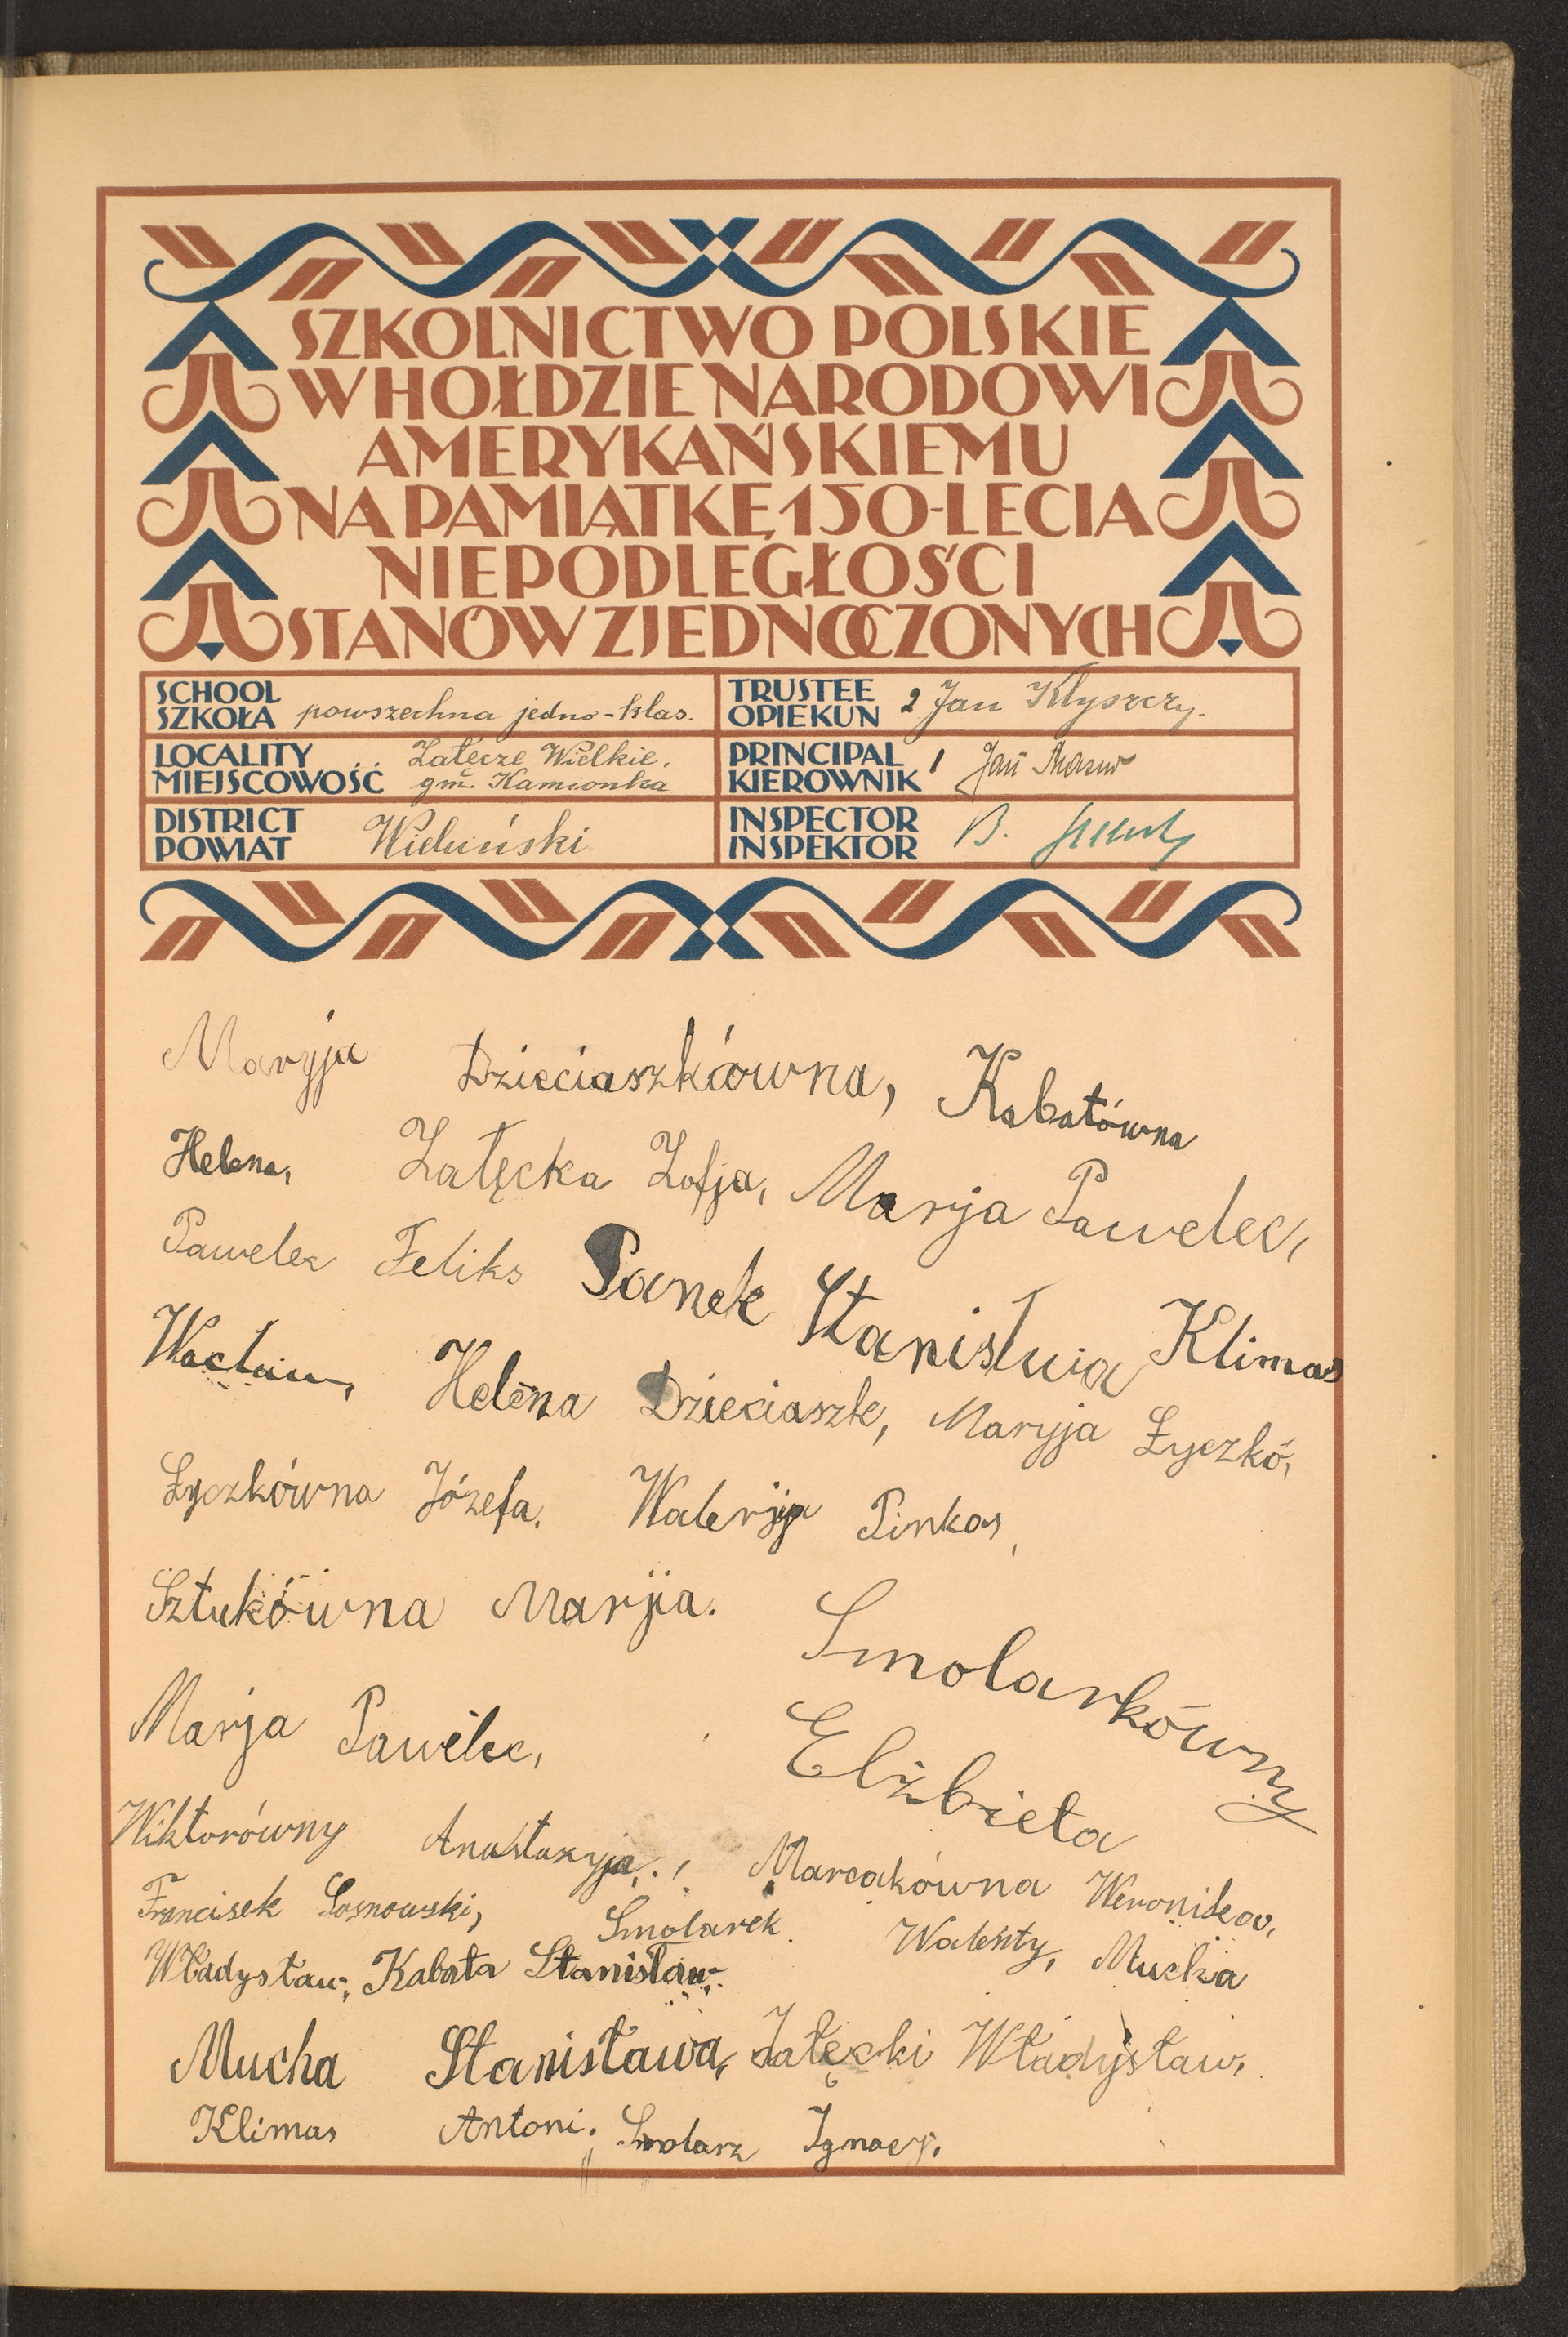 SZKOLNICTWO POLSKIE
W HOŁDZIE NARODOWI
AMERYKAŃSKIEMU
NA PAMIĄTKĘ 150-LECIA
NIEPODLEGŁOŚCI
STANÓW ZJEDNOCZONYCH
SCHOOL
SZKOŁA powszechna jedno-klas.
TRUSTEE
OPIEKUN 2 Jan Kłyszczy.
LOCALITY
MIEJSCOWOŚĆ Załęcze Wielkie.
gm. Kamionka
PRINCIPAL
KIEROWNIK 1 Jan
DISTRICT
POWIAT Wieluński
INSPECTOR
INSPEKTOR B.
Maryja Dzieciaszkówna, Kabatówna
Helena, Załęcka Zofja, Marja Pawelec,
Pawelec Feliks Panek Stanisłwia Klimas
Wacław, Helena Dzieciaszk, Maryja Łyczkó,
Łyczkówna Józefa. Walerja Pinkas,
Sztukówna Marjia. Smolarkówny
Marja Pawelec, Elżbieta
Wiktorówny Anastazyja, Marcakówna Weronika,
Francisek Sosnowski, Smolarek Walenty, Mucha
Władysław, Kabata Stanisław,
Mucha Stanisława, Załęcki Władysław,
Klimas Antoni, Smolarz Ignacy.